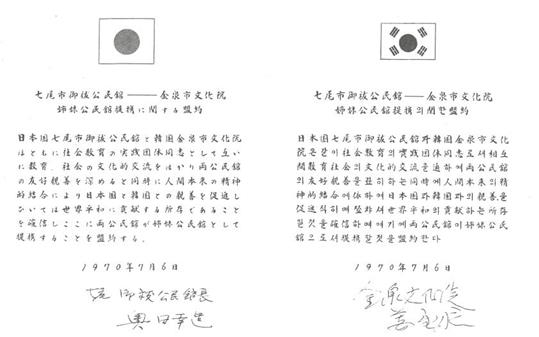 七尾市御祓公民館───金泉市文化院
姉妹公民館提携に関する盟約
日本国七尾市御祓公民館と韓国金泉市文化院
はともに社会教育の実践団体同志として互い
に教育、社会の文化的交流をはかり両公民館
の友好親善を深めると同時に人間本来の精神
的結合により日本国と韓国との親善を促進し
ひいては世界平和に貢献する所存であること
を確信しここに両公民館が姉妹公民館として
提携することを盟約する。
1970年7月6日
御祓公民館長
奥田幸造
七尾市御祓公民館───金泉市文化院
姉妹公民館提携의関한盟約
日本国七尾市御祓公民館과韓国金泉市文化
院은같이社会教育의実践団体同志로서相互
間教育社会의文化的交流를通하여両公民館
의友好親善을
同時에人間本来의精神
的結合에依하여日本国과韓国과의親善을
促進
世界平和에貢献하는所存
両公民館이姉妹公民
館으로서提携할것을盟約한다
1970年7月6日
金泉文化院